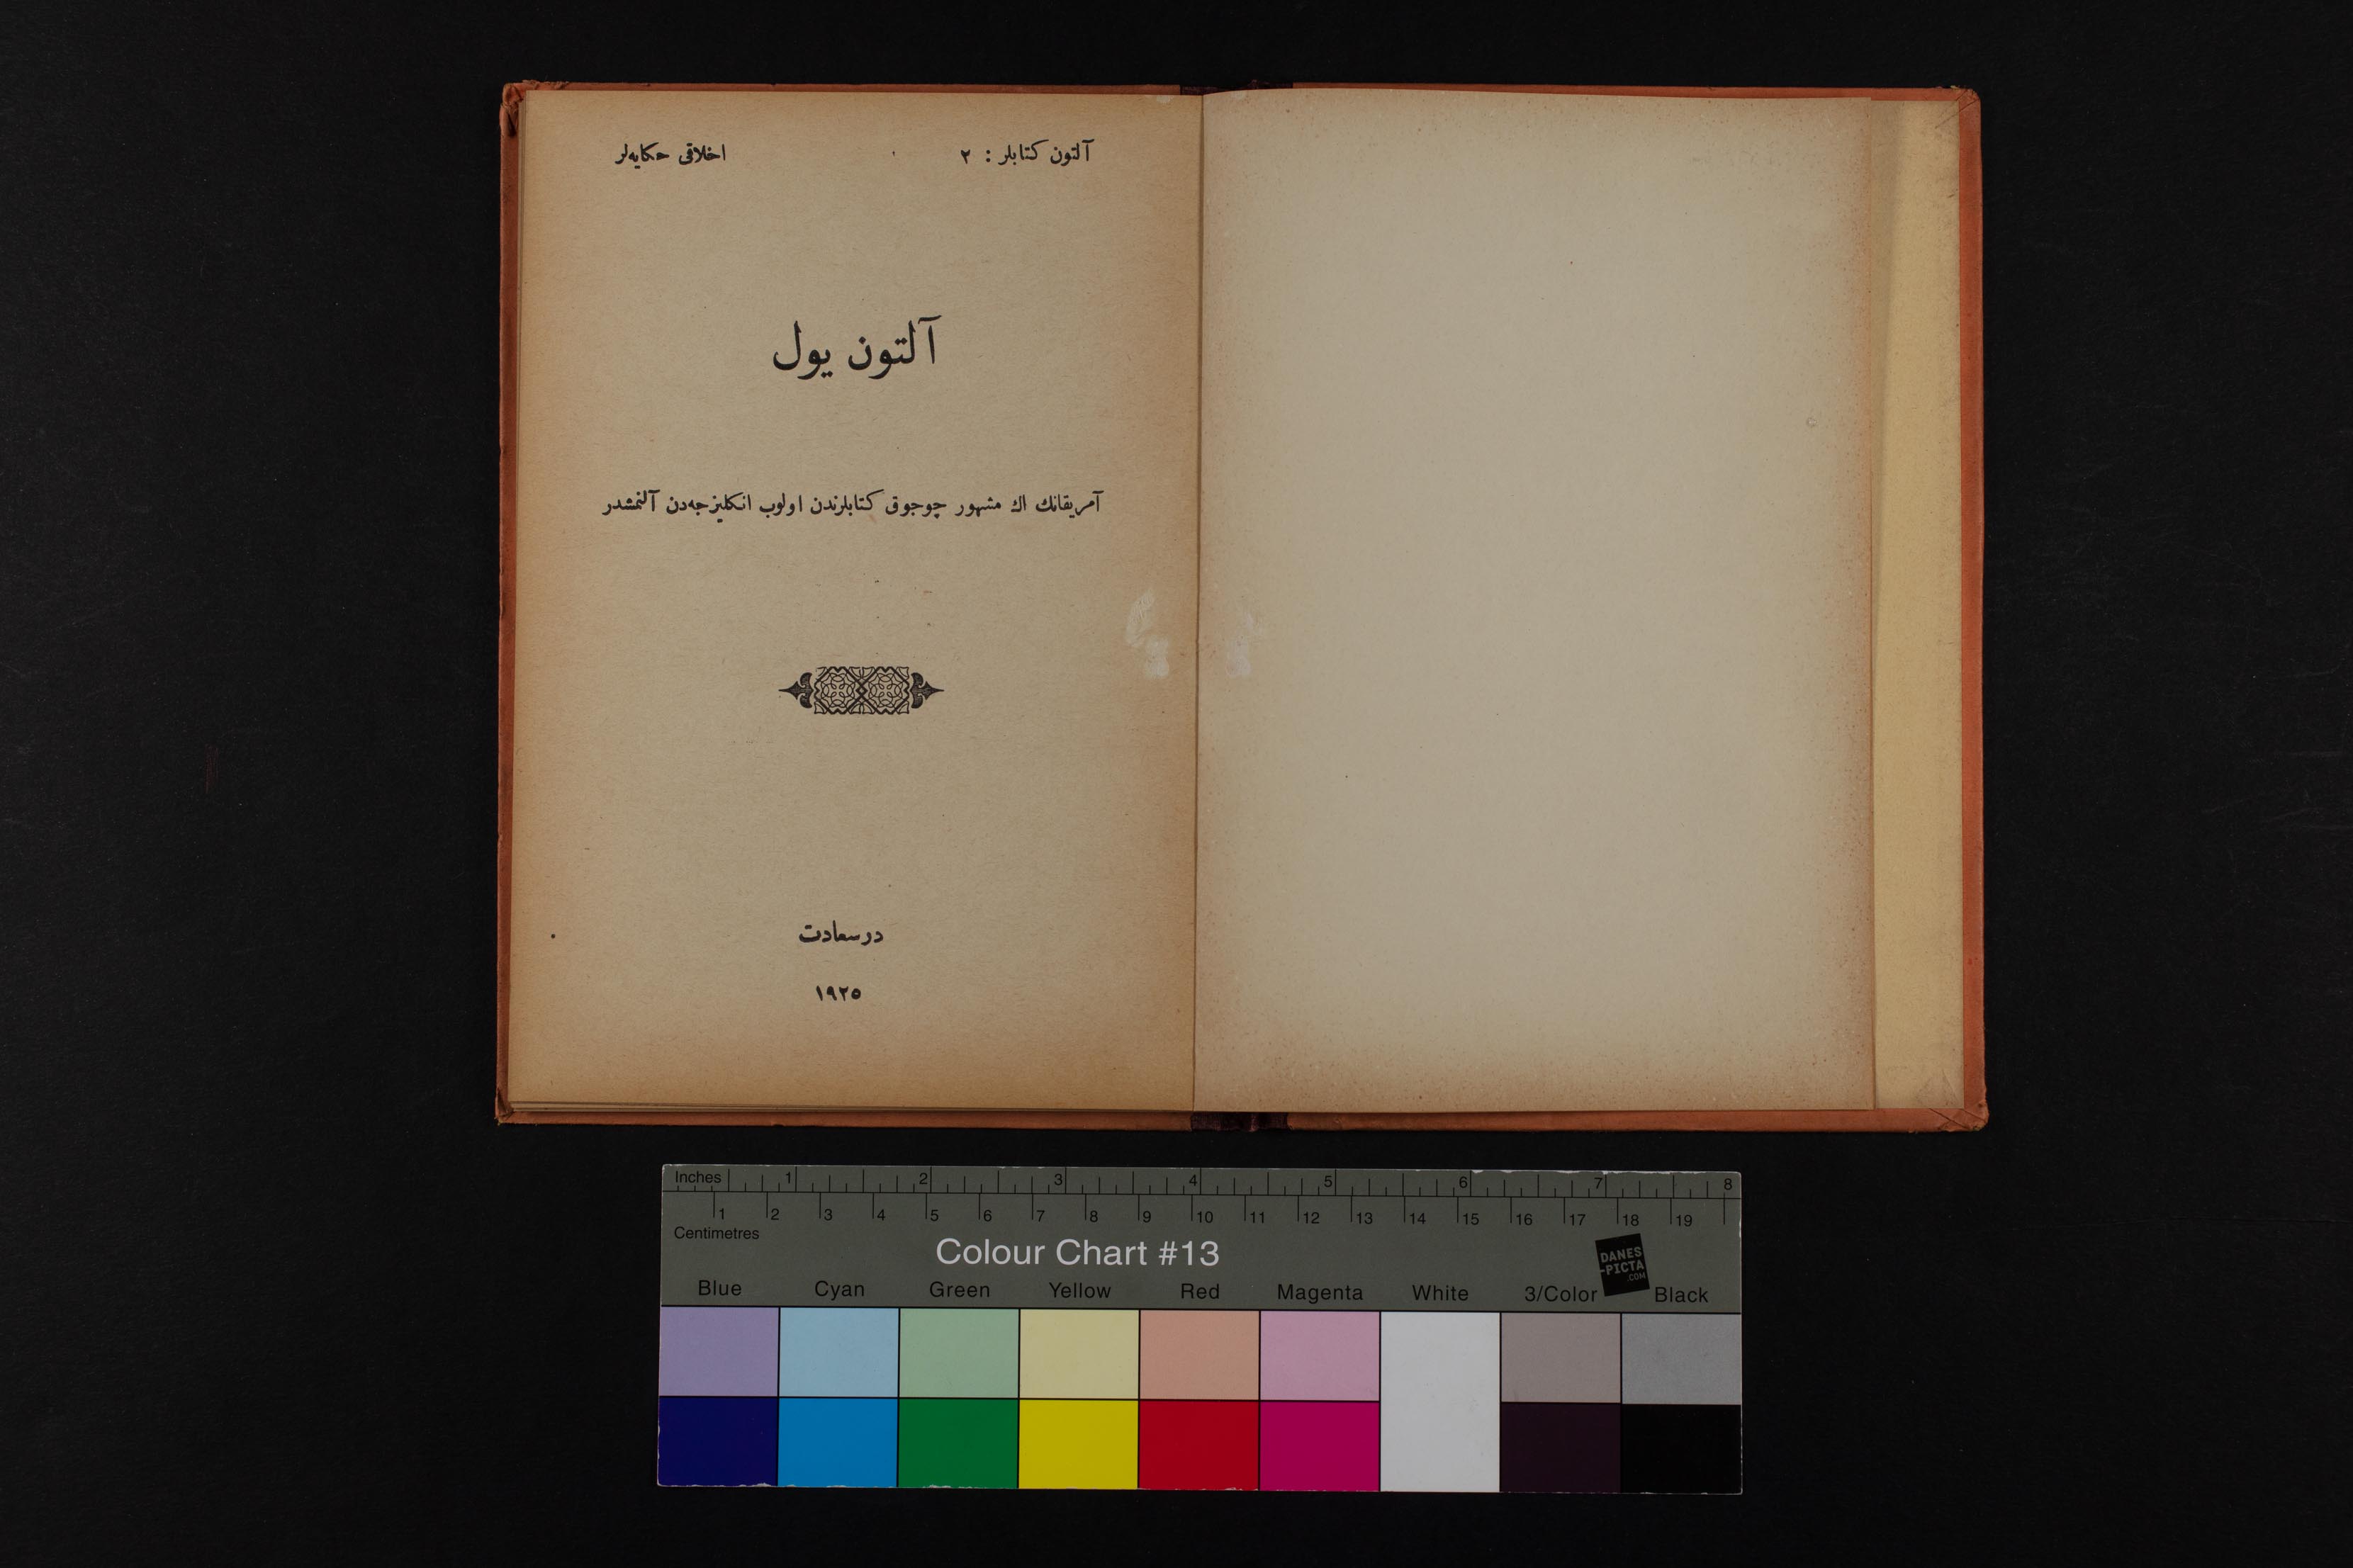 آلتون كتابلر : ٢
اخلاقى حكايه‌لر
آلتون يول
آمريقانك اك مشهور چوجوق كتابلرندن اولوب انكليزجه‌دن آلنمشدر
درسعادت
١٩٢٥
Inches 1 2 3 4 5 6 7 8
1 2 3 4 5 6 7 8 9 10 11 12 13 14 15 16 17 18 19
Centimetres
Colour Chart #13
DANES
-PICTA
.COM
Blue Cyan Green Yellow Red Magenta White 3/Color Black